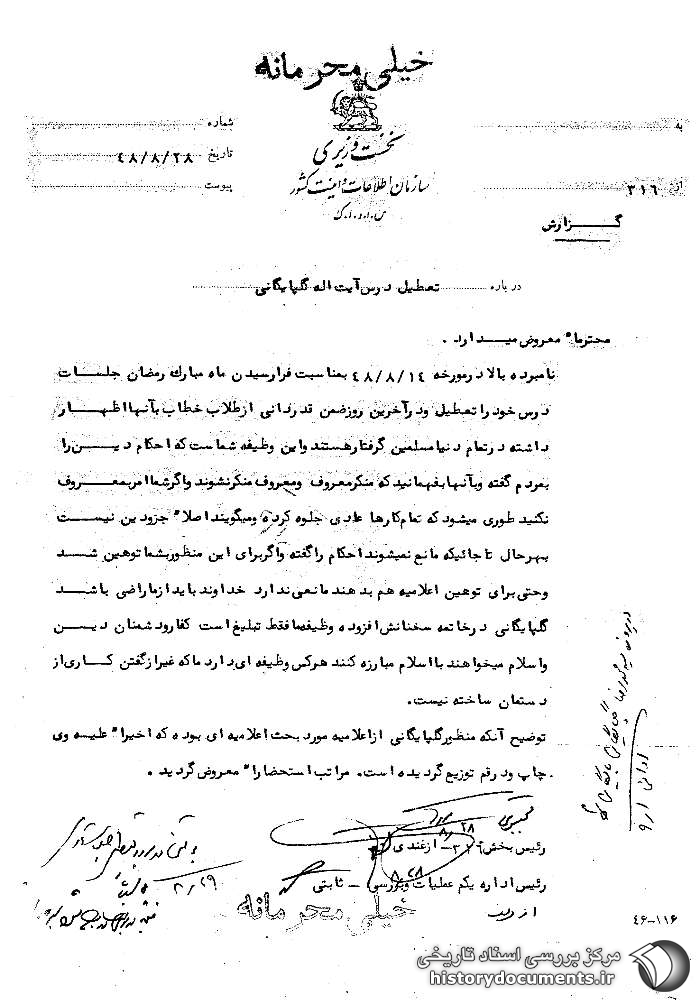 خیلی محرمانه
نخست وزیری
سازمان اطلاعات و امنیت کشور
س.ا.و.ا.ک
به
از ۳۱۶
شماره
تاریخ ۴۸/۸/۲۸
پیوست
گزارش
درباره تعطیل درس آیت اله گلپایگانی
محترما" معروض میدارد .
نامبرده بالا درمورخه ۴۸/۸/۱۴ بمناسبت فرارسیدن ماه مبارک رمضان جلسات
درس خود را تعطیل ودرآخرین روزضمن قدردانی ازطلاب خطاب بآنها اظهار
داشته درتمام دنیا مسلمین گرفتارهستند واین وظیفه شماست که احکام دین را
بمردم گفته وبآنها بفهمانید که منکرمعروف ومعروف منکرنشوند واگرشما امربمعروف
نکنید طوری میشود که تمام کارها عادی جلوه کرده ومیگویند اصلا" جزودین نیست
بهرحال تاجائیکه مانع نمیشوند احکام را گفته واگربرای این منظوربشما توهین شد
وحتی برای توهین اعلامیه هم بدهند مانعی ندارد خداوند باید ازما راضی باشد
گلپایگانی درخاتمه سخنانش افزوده وظیفه ما فقط تبلیغ است کفارودشمنان دین
واسلام میخواهند با اسلام مبارزه کنند هرکس وظیفه ای دارد ما که غیرازگفتن کاری از
دستمان ساخته نیست.
توضیح آنکه منظورگلپایگانی ازاعلامیه مورد بحث اعلامیه ای بوده که اخیرا" علیه وی
چاپ ودرقم توزیع گردیده است. مراتب استحضارا" معروض گردید .
رئیس بخش ۳۱۶ - ازغندی
۸/۲۸
رئیس اداره یکم عملیات وبررسی - ثابتی
۸/۲۸
۸/۲۹
خیلی محرمانه
۴۶-۱۱۶
مرکز بررسی اسناد تاریخی
historydocuments.ir